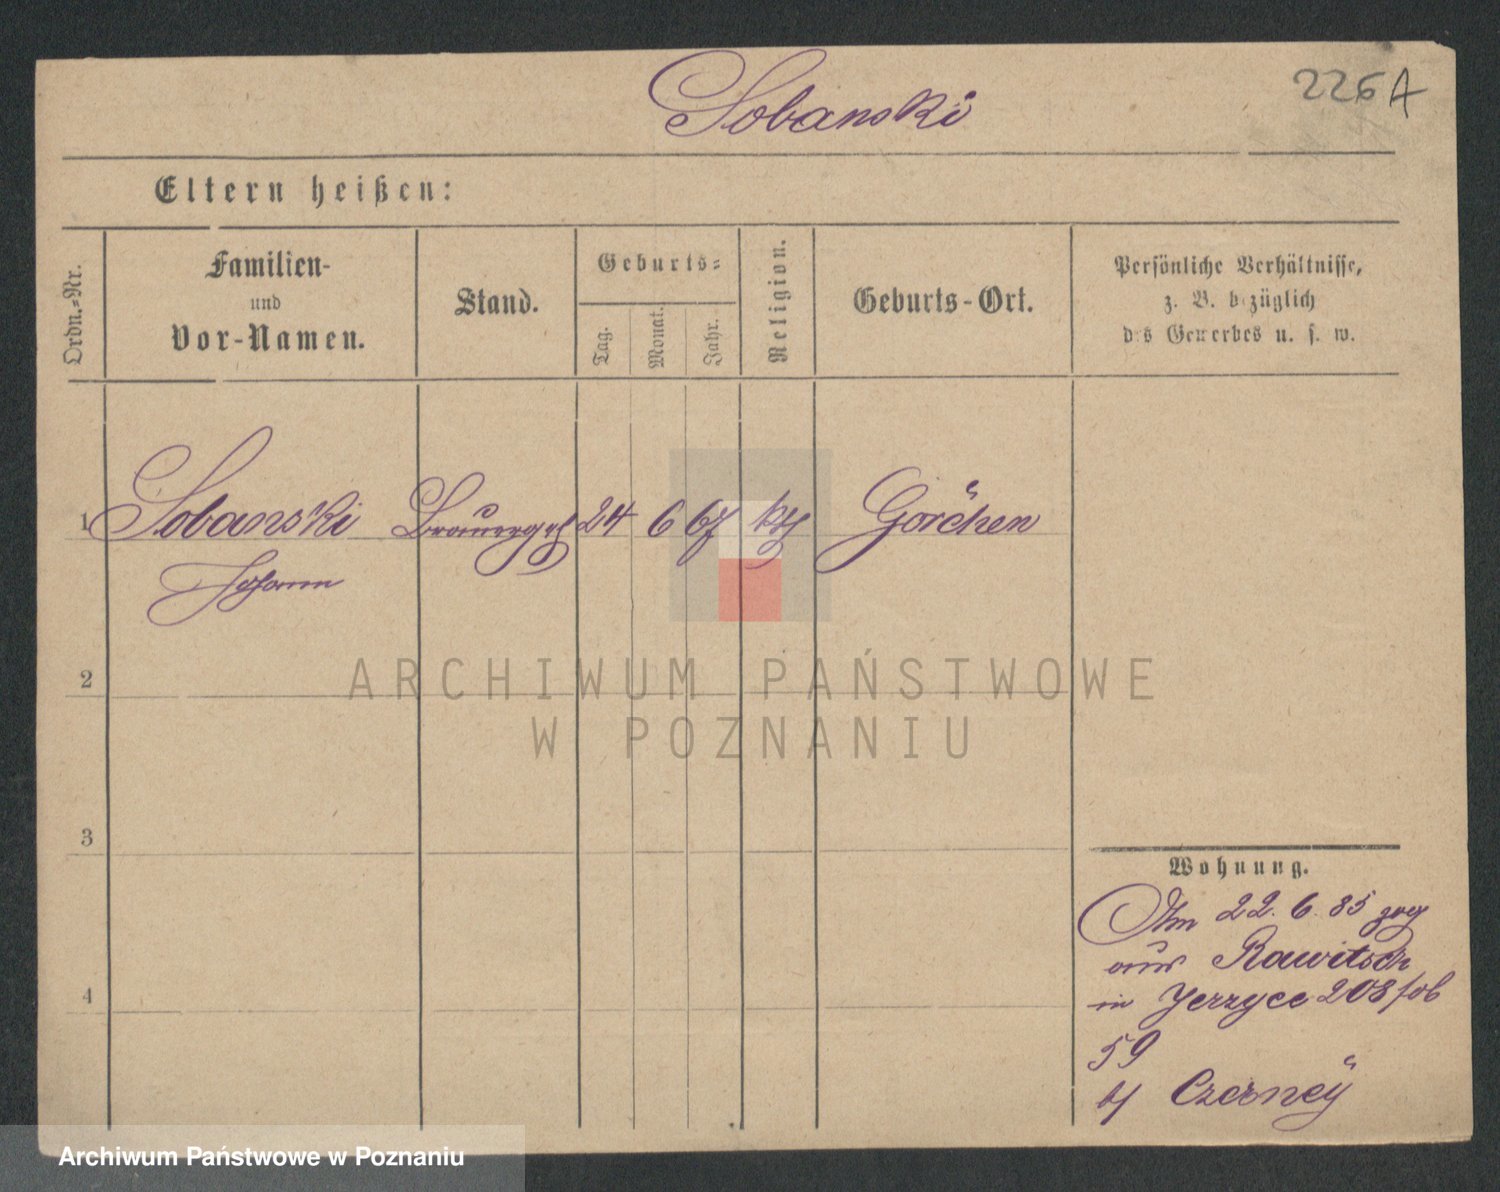 Sobanski
226A
Eltern heißen:
Ordn.-Nr.
Familien-
und
Vor-Namen.
Stand.
Geburts-
Tag.
Monat.
Jahr.
Religion.
Geburts-Ort.
Persönliche Verhältnisse,
z. B. bezüglich
des Gewerbes u. s. w.
1 Sobanski 24 6 67 kth Görchen
Johann
2
ARCHIWUM PAŃSTWOWE
W POZNANIU
3
4
Wohnung.
Am 22. 6. 85
aus Rawitsch
in Jerzyce 208
59
b/ Czerney
Archiwum Państwowe w Poznaniu